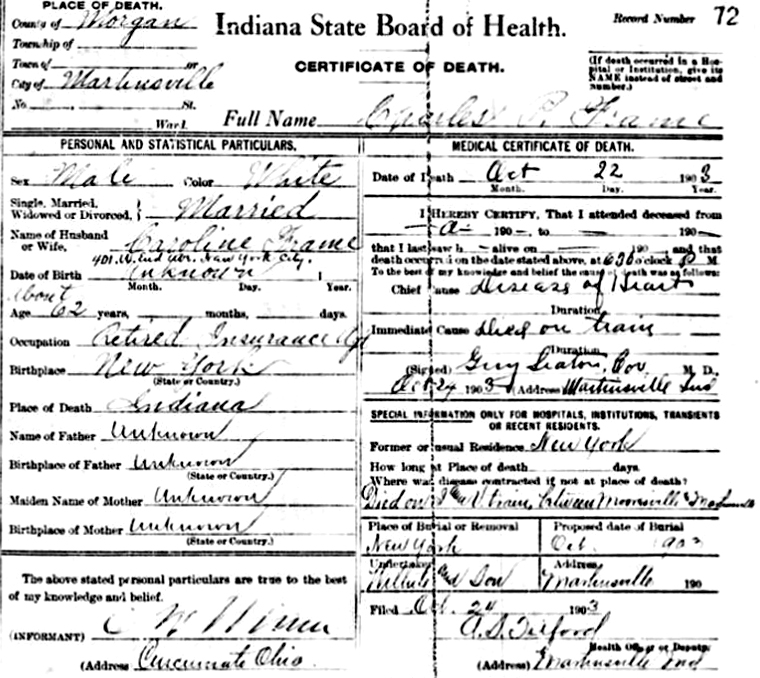 PLACE OF DEATH.
County of Morgan
Township of
Town of or
City of Martinsville
No. St.
Ward.
Indiana State Board of Health.
CERTIFICATE OF DEATH.
Record Number 72
(If death occurred in a Hos-
pital or Institution, give its
NAME instead of street and
number.)
Full Name Charles P. Frame
PERSONAL AND STATISTICAL PARTICULARS.
Sex Male Color White
Single, Married,
Widowed or Divorced, Married
Name of Husband
or Wife, Caroline Frame
401. W. End Ave. New York City.
Date of Birth Unknown
Month. Day. Year.
About
Age 62 years, months, days.
Occupation Retired Insurance Agt
Birthplace New York
(State or Country.)
Place of Death Indiana
Name of Father Unknown
Birthplace of Father Unknown
(State or Country.)
Maiden Name of Mother Unknown
Birthplace of Mother Unknown
(State or Country.)
The above stated personal particulars are true to the best
of my knowledge and belief.
(INFORMANT)
(Address Cincinnati Ohio
MEDICAL CERTIFICATE OF DEATH.
Date of Death Oct 22 1903
Month. Day. Year.
I HEREBY CERTIFY, That I attended deceased from
190 , to 190
that I last saw h alive on 190 , and that
death occurred on the date stated above, at 630 o'clock P M.
To the best of my knowledge and belief the cause of death was as follows:
Chief Cause Disease of Heart
Duration
Immediate Cause Died on train
Duration
(Signed) Guy Seaton, Cor. M. D.,
Oct 24 1903 (Address) Martinsville Ind
SPECIAL INFORMATION ONLY FOR HOSPITALS, INSTITUTIONS, TRANSIENTS
OR RECENT RESIDENTS.
Former or usual Residence New York
How long at Place of death days.
Where was disease contracted if not at place of death?
Died on I and V train, between Mooresville &
Place of Burial or Removal
New York
Proposed date of Burial
Oct. 1903
Undertaker
and Son
Address
Martinsville 190
Filed Oct. 24 1903
Health Officer or Deputy.
(Address) Martinsville Ind